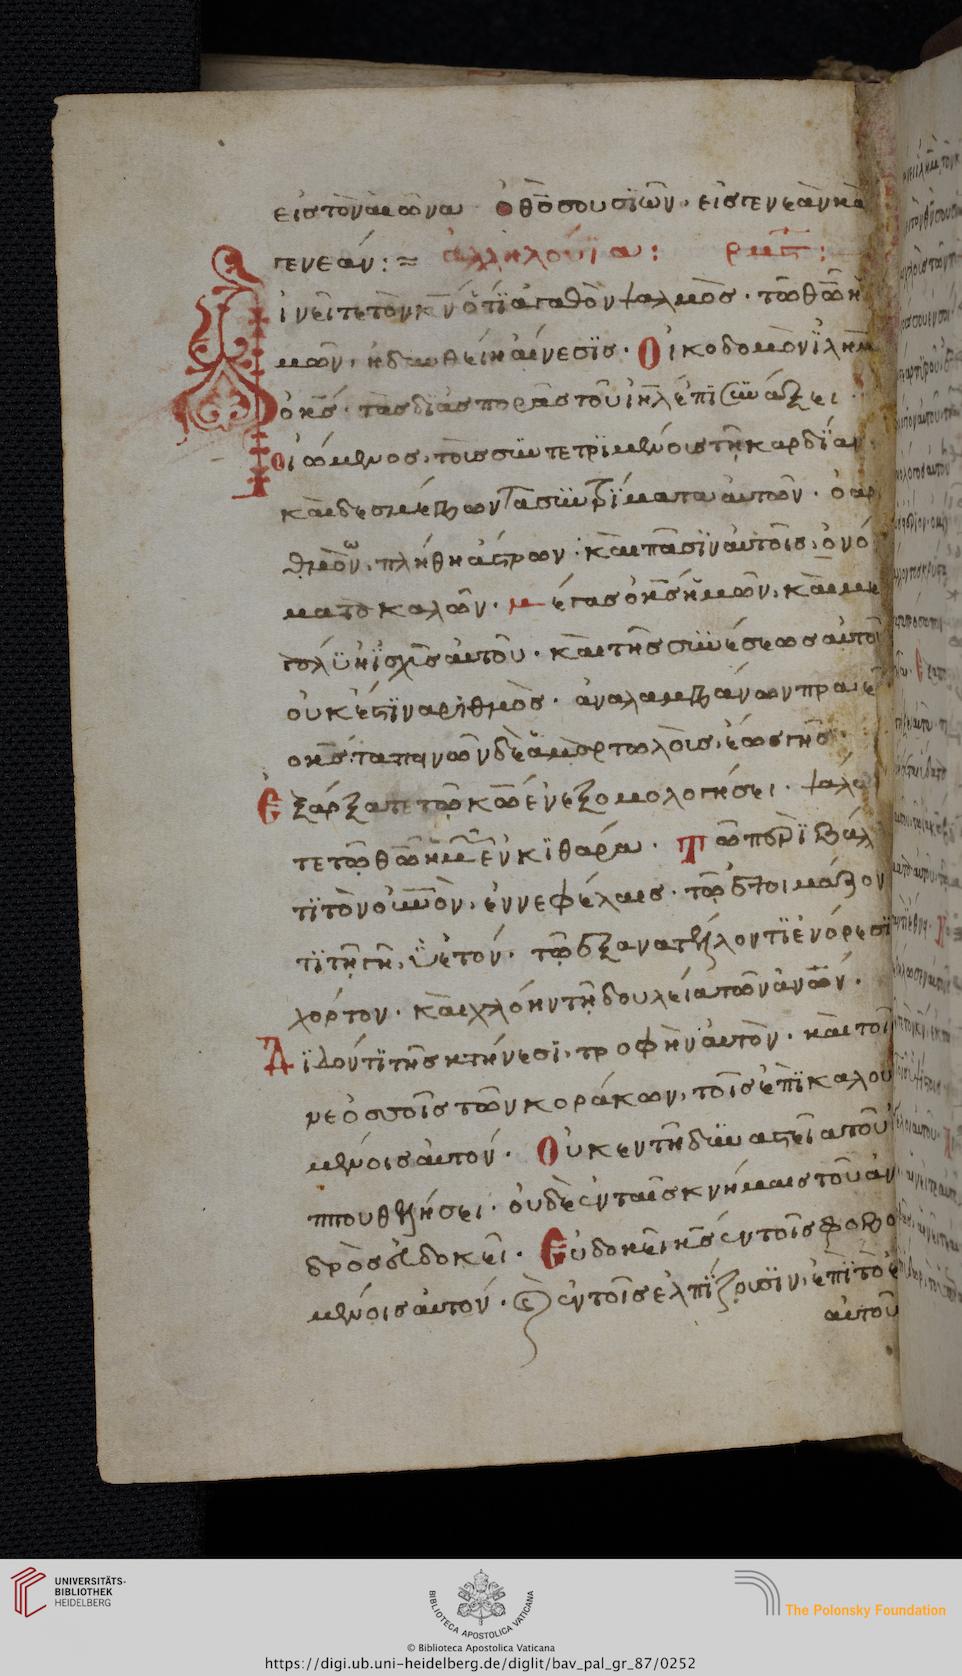 εἰς τὸν αἰῶνα ὁ θς σου σϊών. εἰς γενεὰν καὶ
γενεάν: ἀλληλούϊα: ρμς:
Αἰνεῖτε τὸν κν ὅτϊ ἀγαθὸν ψαλμὸς. τῶ θῶ ἡ
μῶν, ἡδυνθείη αἴνεσϊς. Οἰκοδομὸν ϊλημ
ὁ κς. τὰς διἀσπορὰς τοῦ ιηλ ἐπϊσυνάξει.
Ὁ ἰώμενος, τοὶς συντετρϊμένοις τὴν καρδίαν.
καὶ δεσμέβων τὰ σϋντρίματα αὐτῶν. ὁ αρ
θμὸν, πλήθη ἄστρων. καὶ πᾶσϊν αὐτοῖς, ὀνό
ματα καλῶν. μέγας ὁ κς ἡμῶν, καὶ με
γάλϋ ἡ ϊσχὺς αὐτοῦ. καὶ τῆς σϋνέσεως αὐτοῦ
οὐκ ἔστϊν αρϊθμὸς. ἀναλαμβάνων πραεῖ
ο κς. ταπινῶν δὲ ἁμαρτωλοὶς, ἕως γῆς.
Ἐξάρξατε τῶ κῶ ἐν ἐξομολογήσει. ψαλα
τε τῶ θῶ ἡμῶν ἐν κϊθάρα. Τῶ περϊβάλ
τϊ τὸν οὐνὸν, ἐν νεφέλαις. τῶ ἑτοιμάζον
τϊ τῆ γῆ, ὑετόν. τῶ ἐξανατέλοντϊ ἐν όρεσϊ
χόρτον. καὶ χλόην τῆ δουλεία τῶν ἀνῶν.
Δϊδόντϊ τῆς κτήνεσϊ, τροφὴν αὐτὸν. καὶ τοῖ
νεοσσοῖς τῶν κοράκων, τοῖς ἐπϊκαλου
μένοις αὐτόν. Οὐκ εν τῆ δϋναστεῖα τοῦ ἵ
ππου θελήσει. οὐδὲ ἐν ταῖς κνήμαις τοῦ ἀν
δρὸς εὐδοκεῖ. Εὐδοκεῖ κς ἐν τοῖς φοβο
μένοις αὐτόν. ἐν τοῖς ἐλπϊζουσϊν, ἐπϊ τὸ ἔ
αὐτοῦ
UNIVERSITÄTS-
BIBLIOTHEK
HEIDELBERG
BIBLIOTECA APOSTOLICA VATICANA
© Biblioteca Apostolica Vaticana
The Polonsky Foundation
https://digi.ub.uni-heidelberg.de/diglit/bav_pal_gr_87/0252